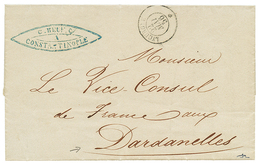 A
CONSTANTINOPLE
Monsieur
Le Vice Consul
de France aux
Dardanelles